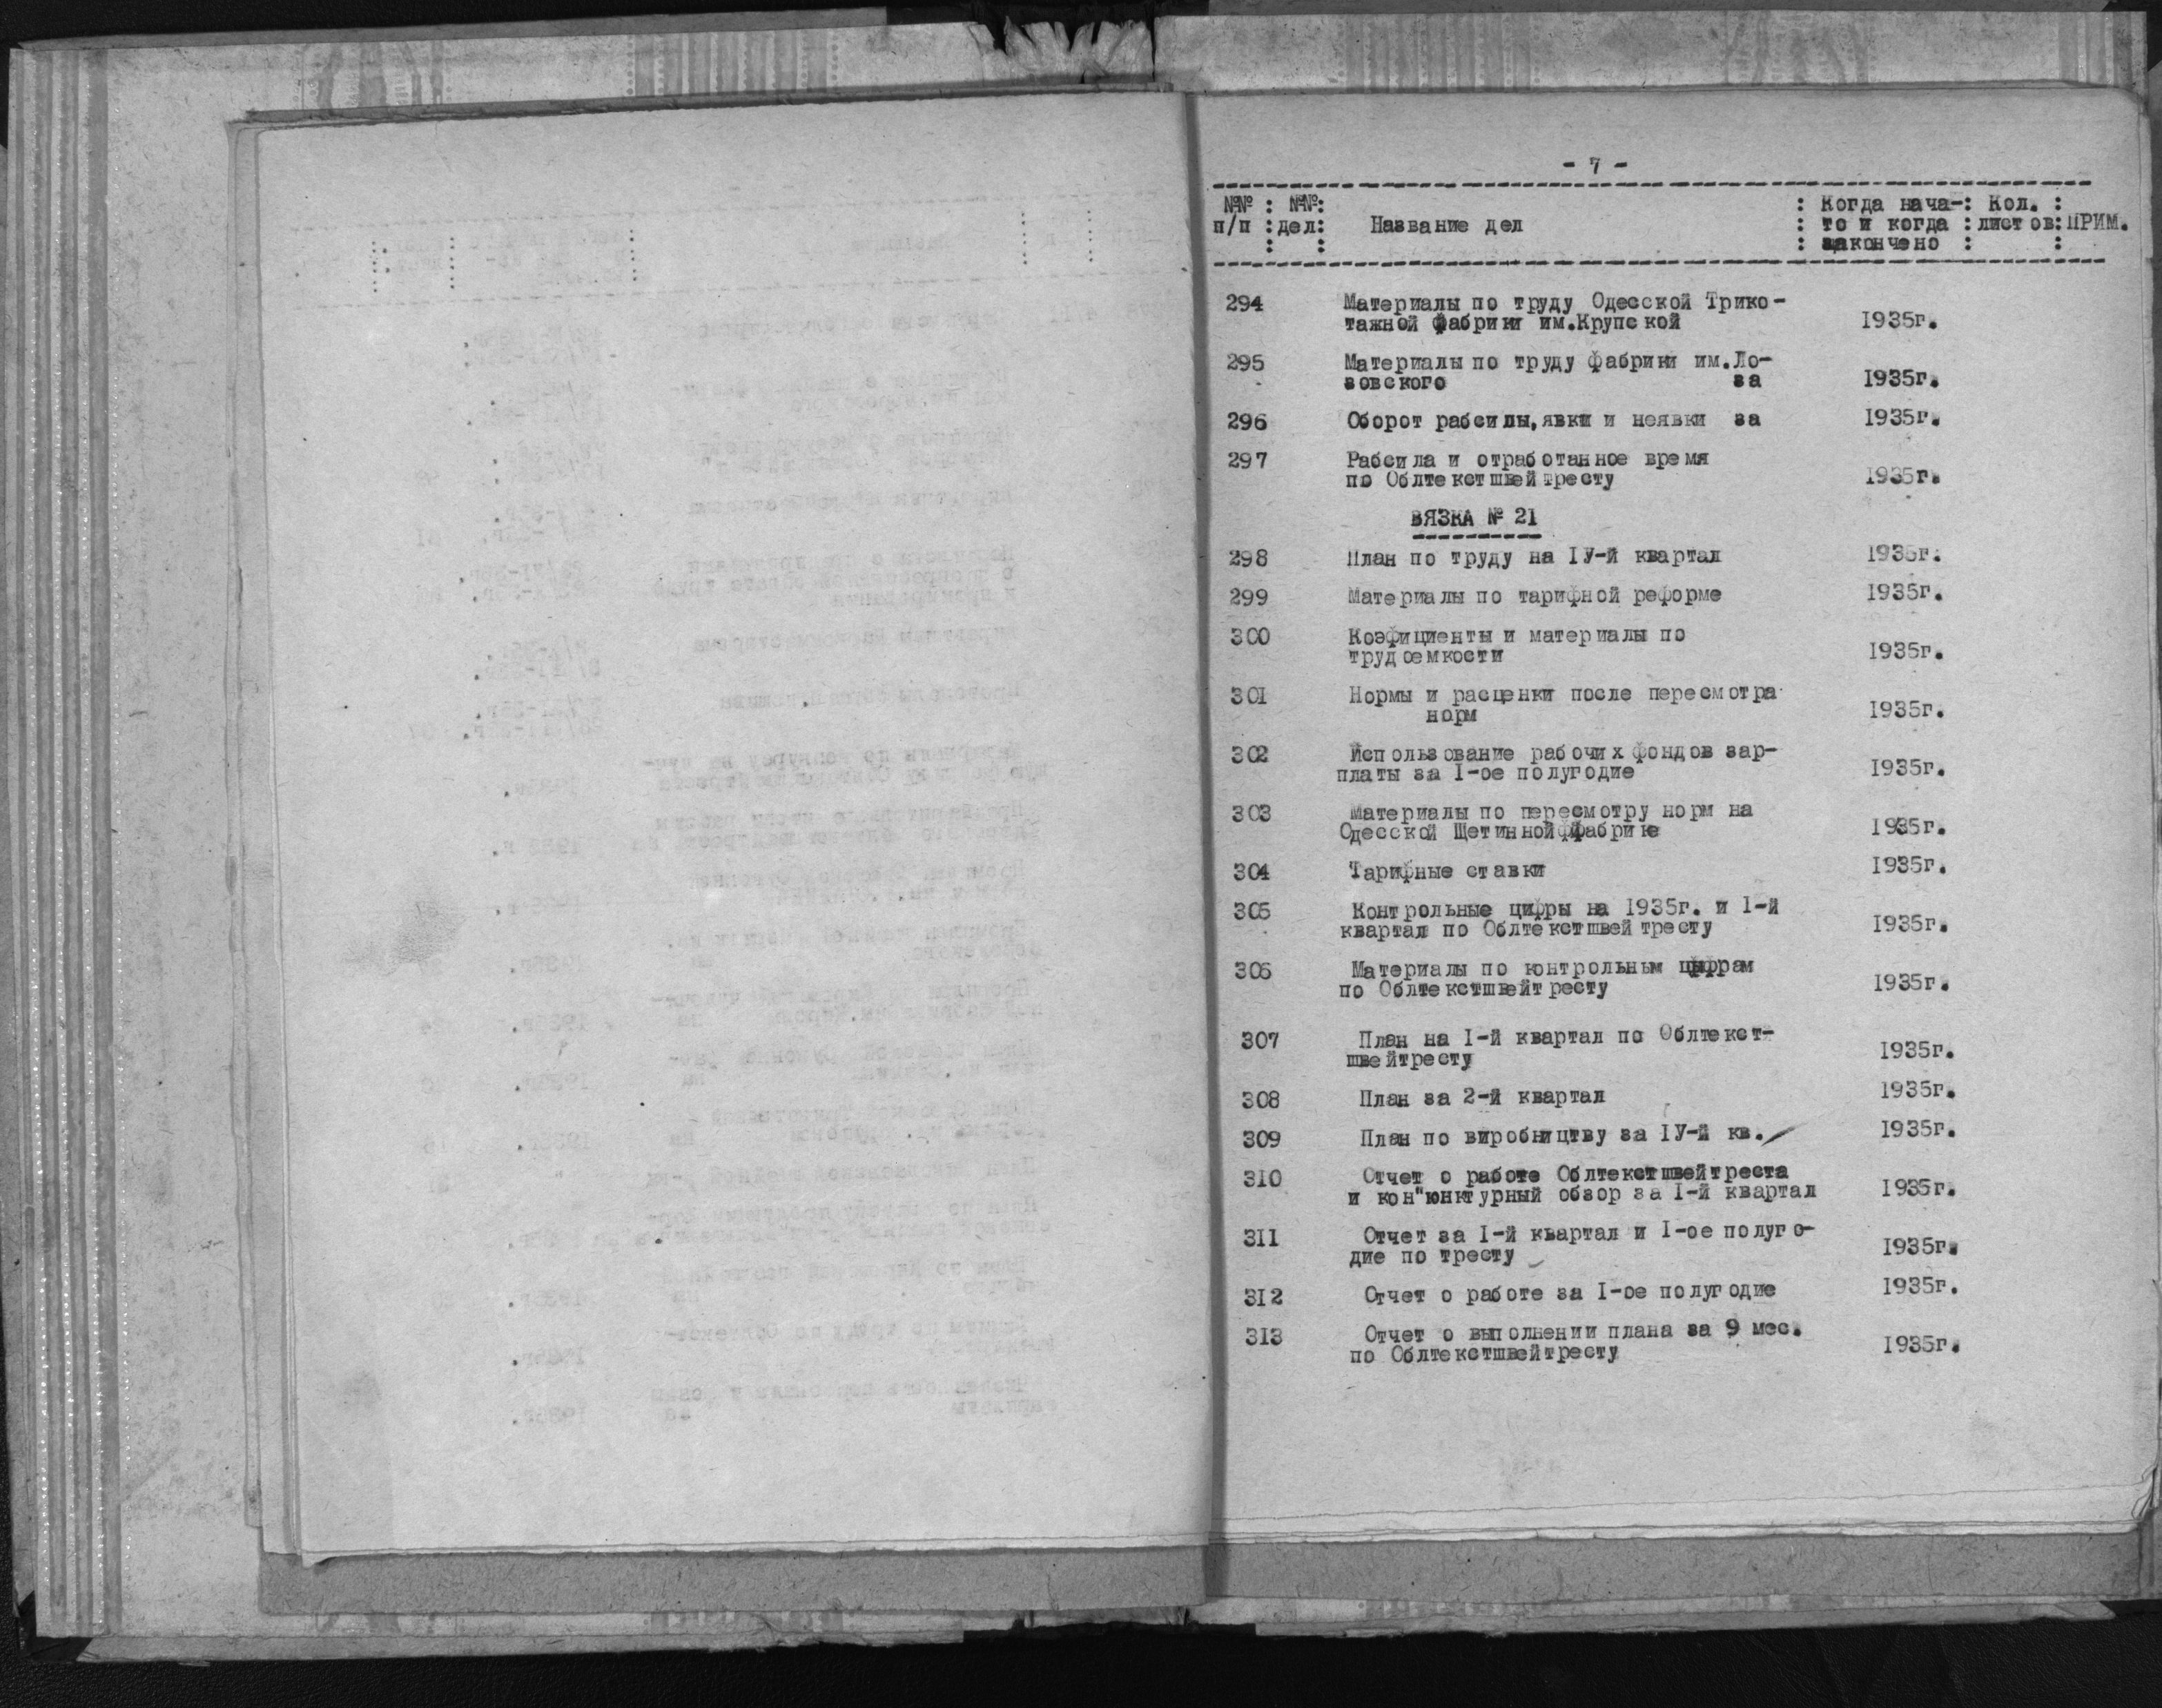 - 7 -
№№ : №№: : Когда нача-: Кол. :
п/п : дел: Название дел : то и когда : листов: ПРИМ.
: : : закончено : :
294 Материалы по труду Одесской Трико-
тажной фабрики им.Крупской 1935г.
295 Материалы по труду фабрики им.Ло-
зовского за 1935г.
296 Оборот рабсилы,явки и неявки за 1935г.
297 Рабсила и отработанное время
по Облтекстшвейтресту 1935г.
ВЯЗКА № 21
298 План по труду на IУ-й квартал 1935г.
299 Материалы по тарифной реформе 1935г.
300 Коэфициенты и материалы по
трудоемкости 1935г.
301 Нормы и расценки после пересмотра
норм 1935г.
302 Использование рабочих фондов зар-
платы за I-ое полугодие 1935г.
303 Материалы по пересмотру норм на
Одесской Щетинной фабрике 1935г.
304 Тарифные ставки 1935г.
305 Контрольные цифры на 1935г. и I-й
квартал по Облтекстшвейтресту 1935г.
306 Материалы по контрольным цифрам
по Облтекстшвейтресту 1935г.
307 План на I-й квартал по Облтекст-
швейтресту 1935г.
308 План за 2-й квартал 1935г.
309 План по виробництву за IУ-й кв. 1935г.
310 Отчет о работе Облтекстшвейтреста
и кон"юнктурный обзор за I-й квартал 1935г.
311 Отчет за I-й квартал и I-ое полуго-
дие по тресту 1935г.
312 Отчет о работе за I-ое полугодие 1935г.
313 Отчет о выполнении плана за 9 мес.
по Облтекстшвейтресту 1935г.